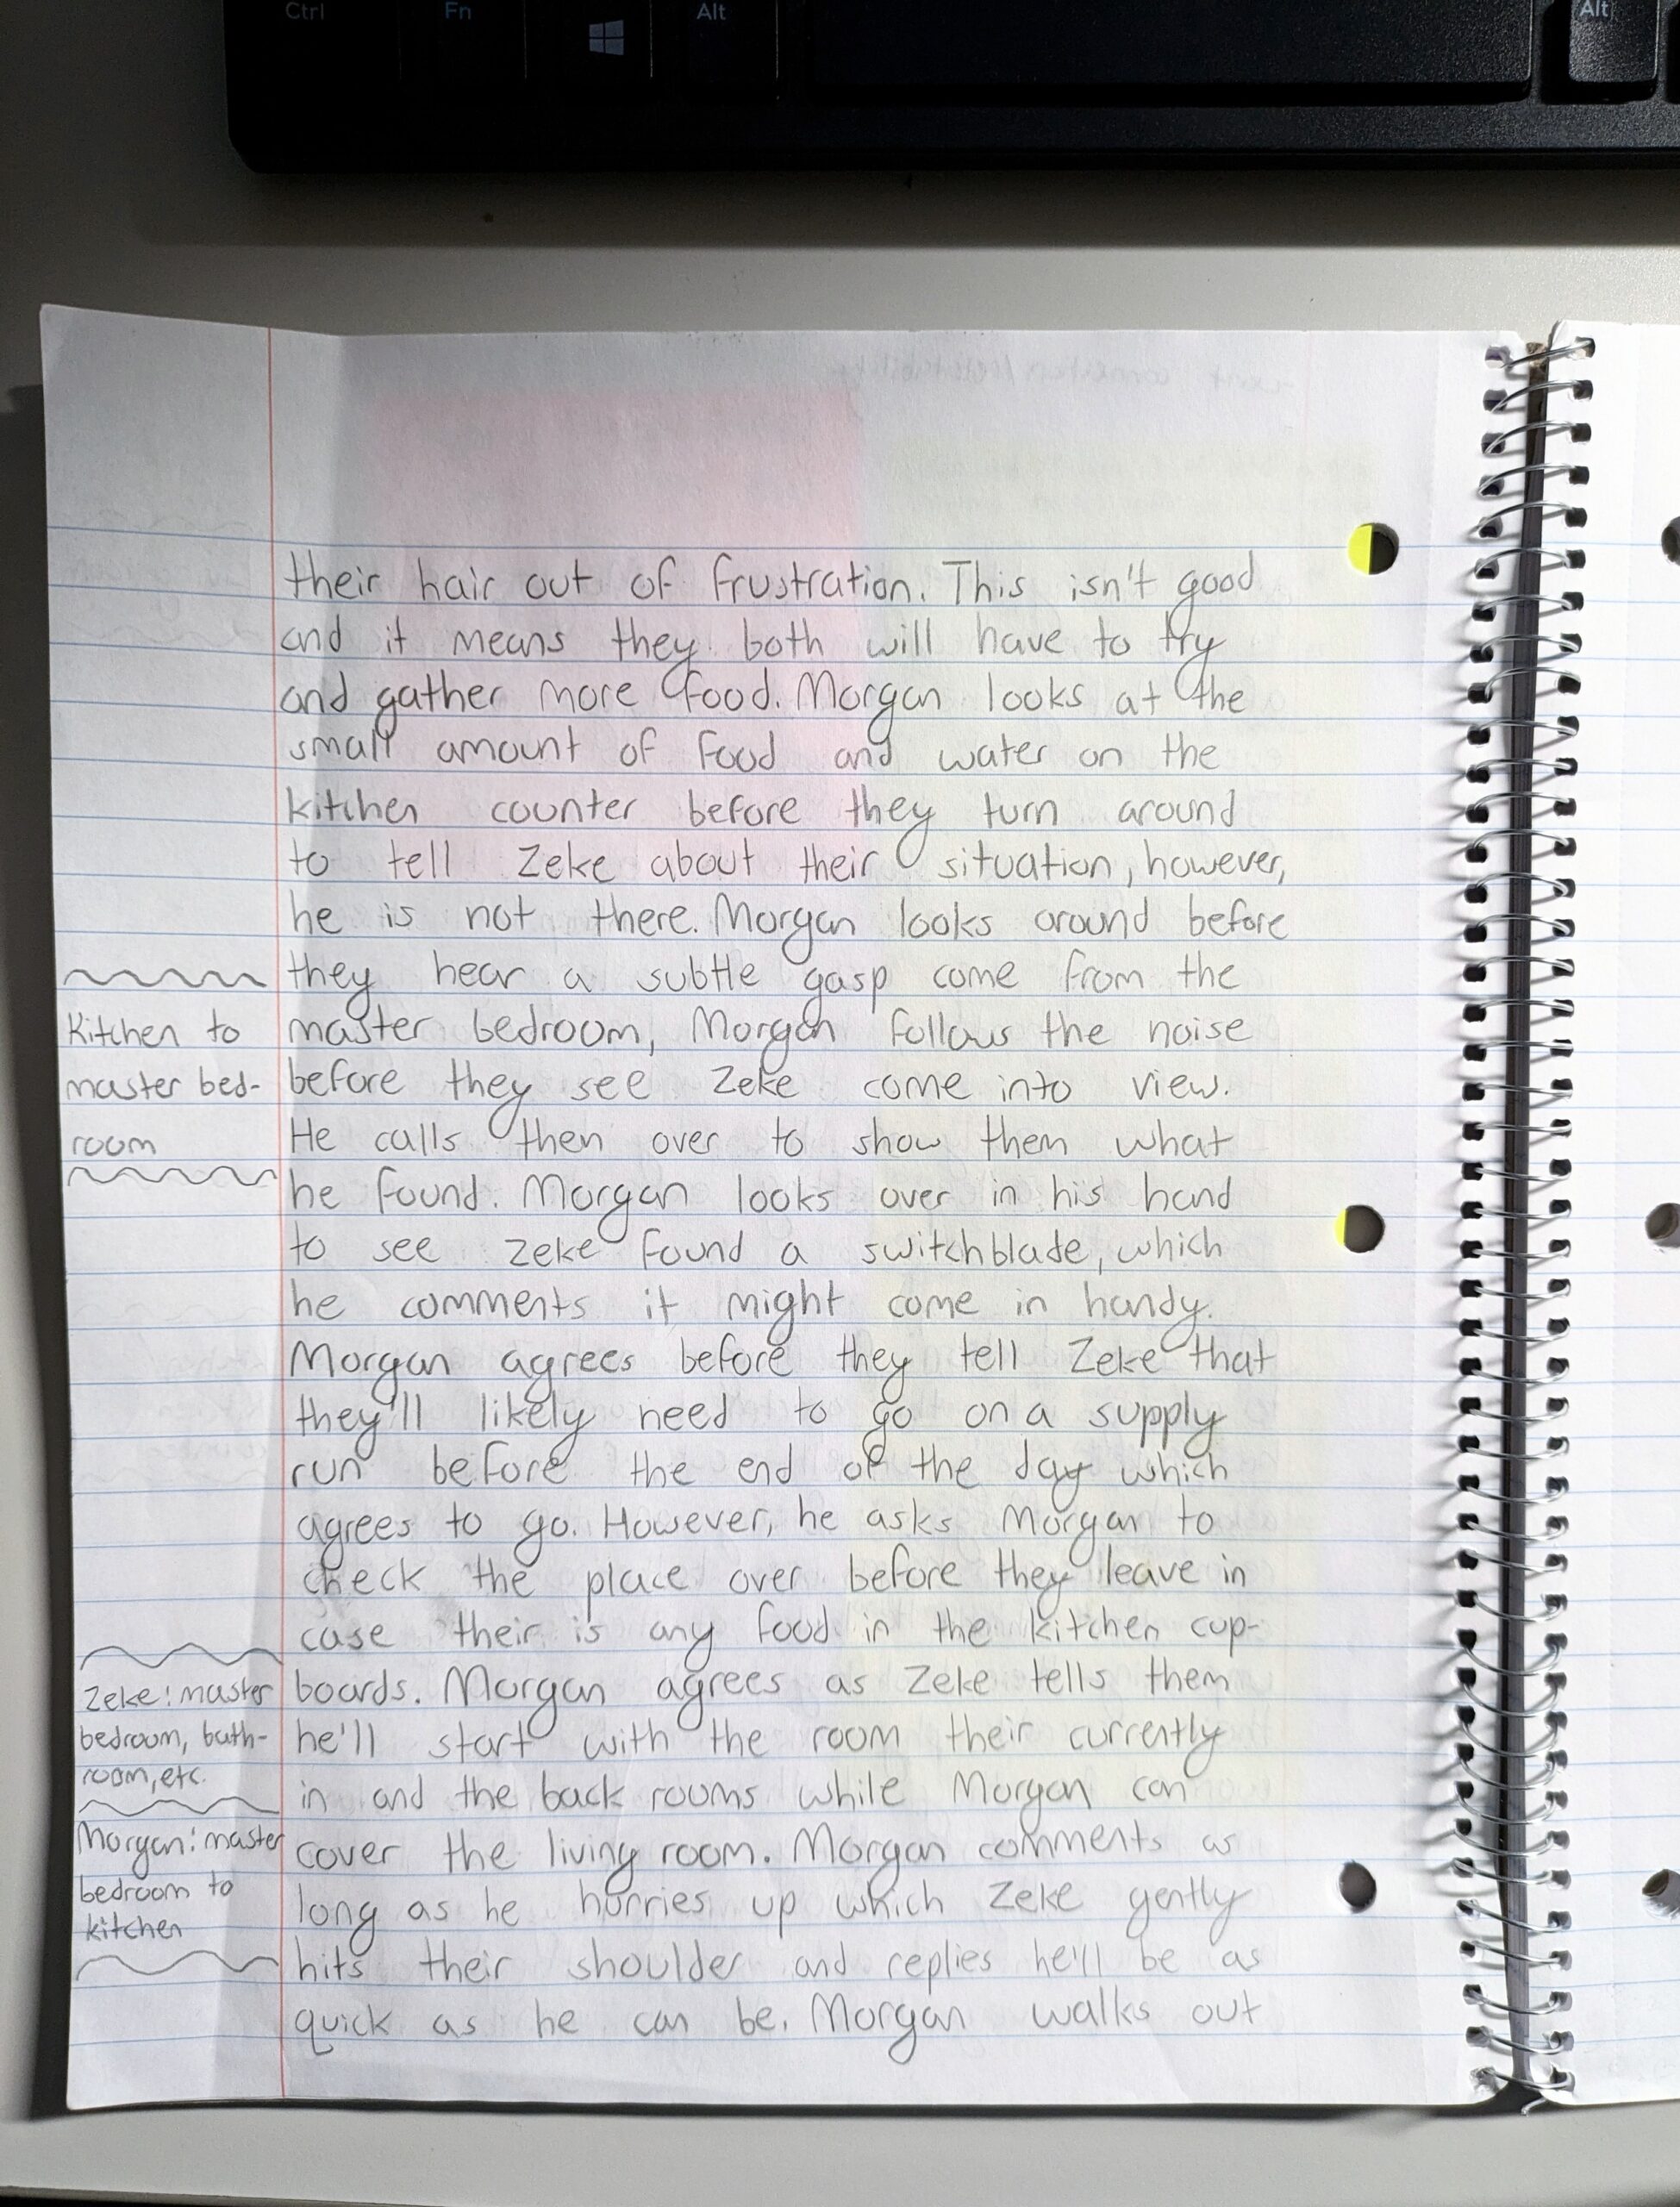 Ctrl Fn Alt Alt
their hair out of frustration. This isn't good
and it means they both will have to try
and gather more food. Morgan looks at the
small amount of food and water on the
kitchen counter before they turn around
to tell Zeke about their situation, however,
he is not there. Morgan looks around before
they hear a subtle gasp come from the
master bedroom, Morgan follows the noise
before they see Zeke come into view.
He calls then over to show them what
he found. Morgan looks over in his hand
to see Zeke found a switchblade, which
he comments it might come in handy.
Morgan agrees before they tell Zeke that
they'll likely need to go on a supply
run before the end of the day which
agrees to go. However, he asks Morgan to
check the place over before they leave in
case their is any food in the kitchen cup-
boards. Morgan agrees as Zeke tells them
he'll start with the room their currently
in and the back rooms while Morgan can
cover the living room. Morgan comments as
long as he hurries up which Zeke gently
hits their shoulder and replies he'll be as
quick as he can be. Morgan walks out
Kitchen to
master bed-
room
Zeke: master
bedroom, bath-
room, etc.
Morgan: master
bedroom to
kitchen